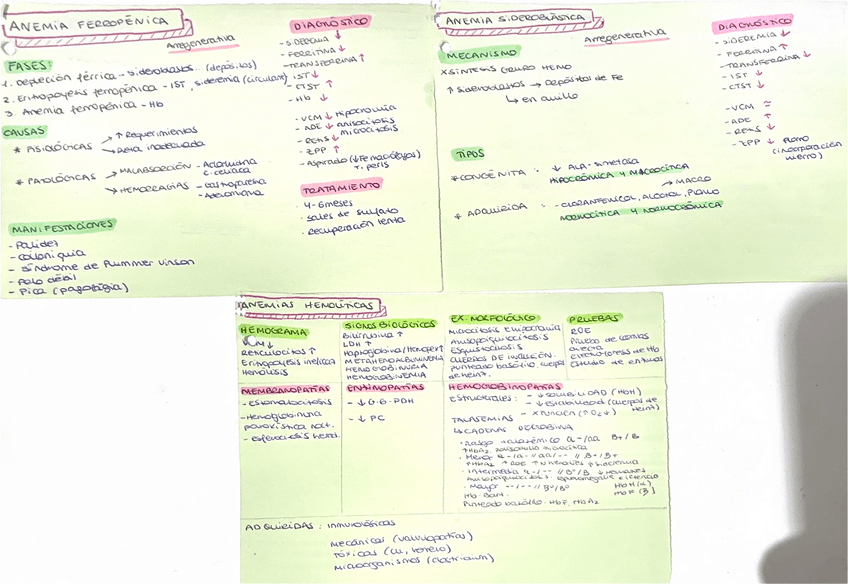 ANEMIA FERROPÉNICA
Arregenerativa
FASES:
1. Depleción férrica - sideroblastos (depósitos)
2. Eritropoyesis ferropénica - IST, sideremia (circulante)
3. Anemia ferropénica - Hb
CAUSAS
* FISIOLÓGICAS → ↑ Requerimientos
→ Dieta inadecuada
* PATOLÓGICAS → MALABSORCIÓN - Aclorhidria
c. celiaca
→ HEMORRAGIAS - Gastropatía
MANIFESTACIONES
- Palidez
- Coiloniquia
- Síndrome de Plummer Vinson
- Pelo débil
- Pica (pagofagia)
DIAGNÓSTICO
- SIDEREMIA ↓
- FERRITINA ↓
- TRANSFERRINA ↑
- IST ↓
- CTST ↑
- Hb ↓
- VCM ↓ Hipocromía
- ADE ↑ Anisocitosis
microcitosis
- RETIS ↓
- ZPP ↑
- Aspirado (↓Fe macrófagos)
T. perls
TRATAMIENTO
- 4-6 meses
- Sales de sulfato
- Recuperación lenta
ANEMIA SIDEROBLÁSTICA
Arregenerativa
MECANISMO
X SÍNTESIS GRUPO HEMO
↑ Sideroblastos → Depósitos de Fe
↳ en anillo
TIPOS
* CONGÉNITA: ↓ ALA-sintetasa
HIPOCRÓMICA Y MACROCÍTICA
→ MACRO
* ADQUIRIDA: - CLORANFENICOL, ALCOHOL, PLOMO
NORMOCÍTICA Y NORMOCRÓMICA
DIAGNÓSTICO
- SIDEREMIA ↓
- FERRITINA ↑
- TRANSFERRINA ↓
- IST ↓
- CTST ↓
- VCM =
- ADE ↑
- RETIS ↓
- ZPP ↓ Plomo
(incorporación
hierro)
ANEMIAS HEMOLÍTICAS
HEMOGRAMA
VCM ↓
Reticulocitos ↑
Eritropoyesis ineficaz
Hemólisis
SIGNOS BIOLÓGICOS
Bilirrubina ↑
LDH ↑
Haptoglobina/Hemopex↑
METAHEMOALBUMINEMIA
HEMOGLOBINURIA
HEMOGLOBINEMIA
EX. MORFOLÓGICO
Microcitosis e hipocromía
Anisopoiquilocitosis
Esquistocitosis
CUERPOS DE INCLUSIÓN:
punteado basófilo, cuerpos
de Heinz.
PRUEBAS
ROE
Prueba de Coombs
directa
Electroforesis de Hb
Estudio de enzimas
MEMBRANOPATÍAS
- Estomatocitosis
- Hemoglobinuria
paroxística noct.
- Esferocitosis hered.
ENZIMOPATÍAS
- ↓ G-6-PDH
- ↓ PC
HEMOGLOBINOPATÍAS
ESTRUCTURALES: - ↓ SOLUBILIDAD (HbH)
- ↓ Estabilidad (cuerpos de
Heinz)
TALASEMIAS - X FUNCIÓN (↑ O2 ↓)
↳ CADENAS DE GLOBINA
• Rasgo talasémico α-/αα B+/B
• Menor α-/α- // αα/-- // B+/B+
• Intermedia α-/-- // B⁰/B
• Mayor --/-- // B⁰/B⁰
Hb Bart
Punteado basófilo HbF, HbA2
ADQUIRIDAS: Inmunológicas
Mecánicas (valvulopatías)
Tóxicas (Cu, veneno)
Microorganismos (Clostridium)